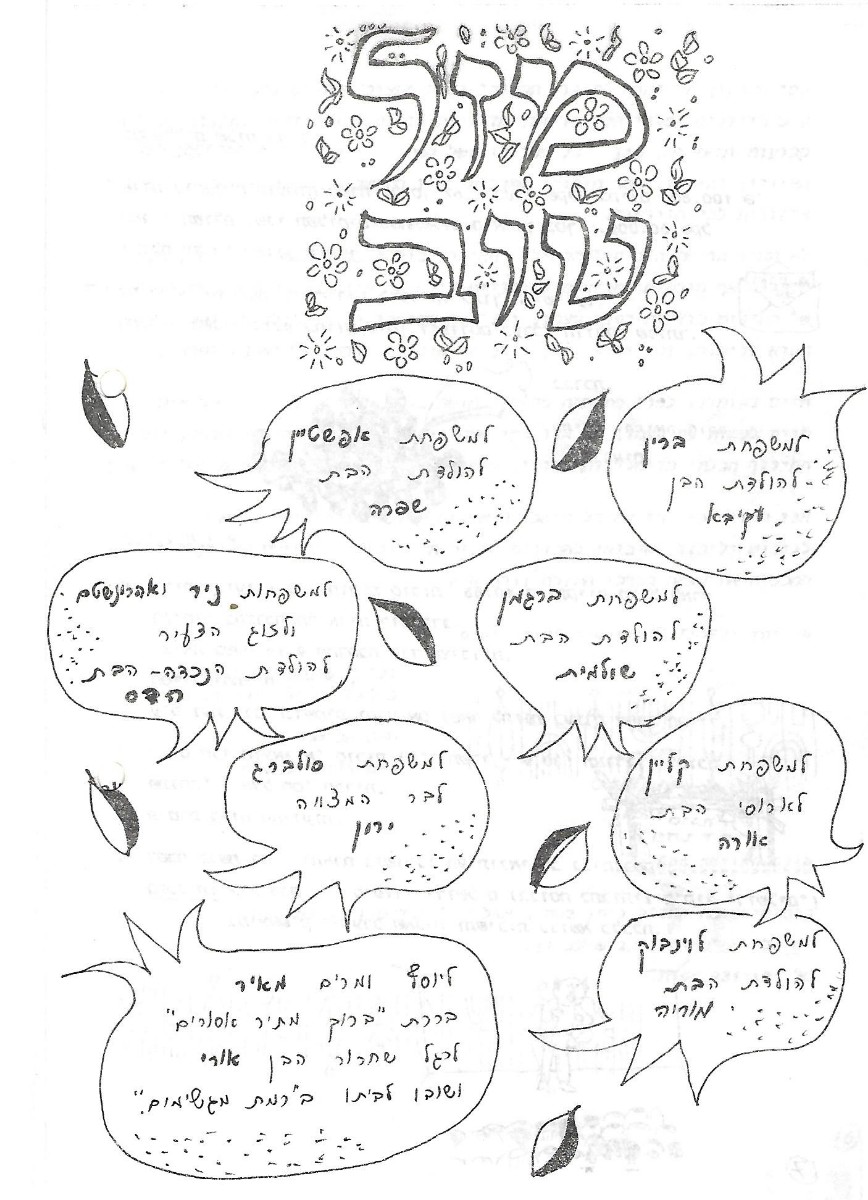 מזל
טוב
למשפחת ברין
להולדת הבן
עקיבא
למשפחת אפשטיין
להולדת הבת
שפרה
למשפחת ברגמן
להולדת הבת
שולמית
למשפחות ניר ואהרונשטם
ולזוג הצעיר
להולדת הנכדה-הבת
הדס
למשפחת קליין
לארוסי הבת
אורה
למשפחת סולברג
לבר המצווה
ירון
למשפחת לוינבוק
להולדת הבת
מוריה
ליוסף ומרים מאיר
בררת "ברוך מתיר אסורים"
לרגל שחרור הבן אורי
ושובו לביתו ב"רמת מגשימום."